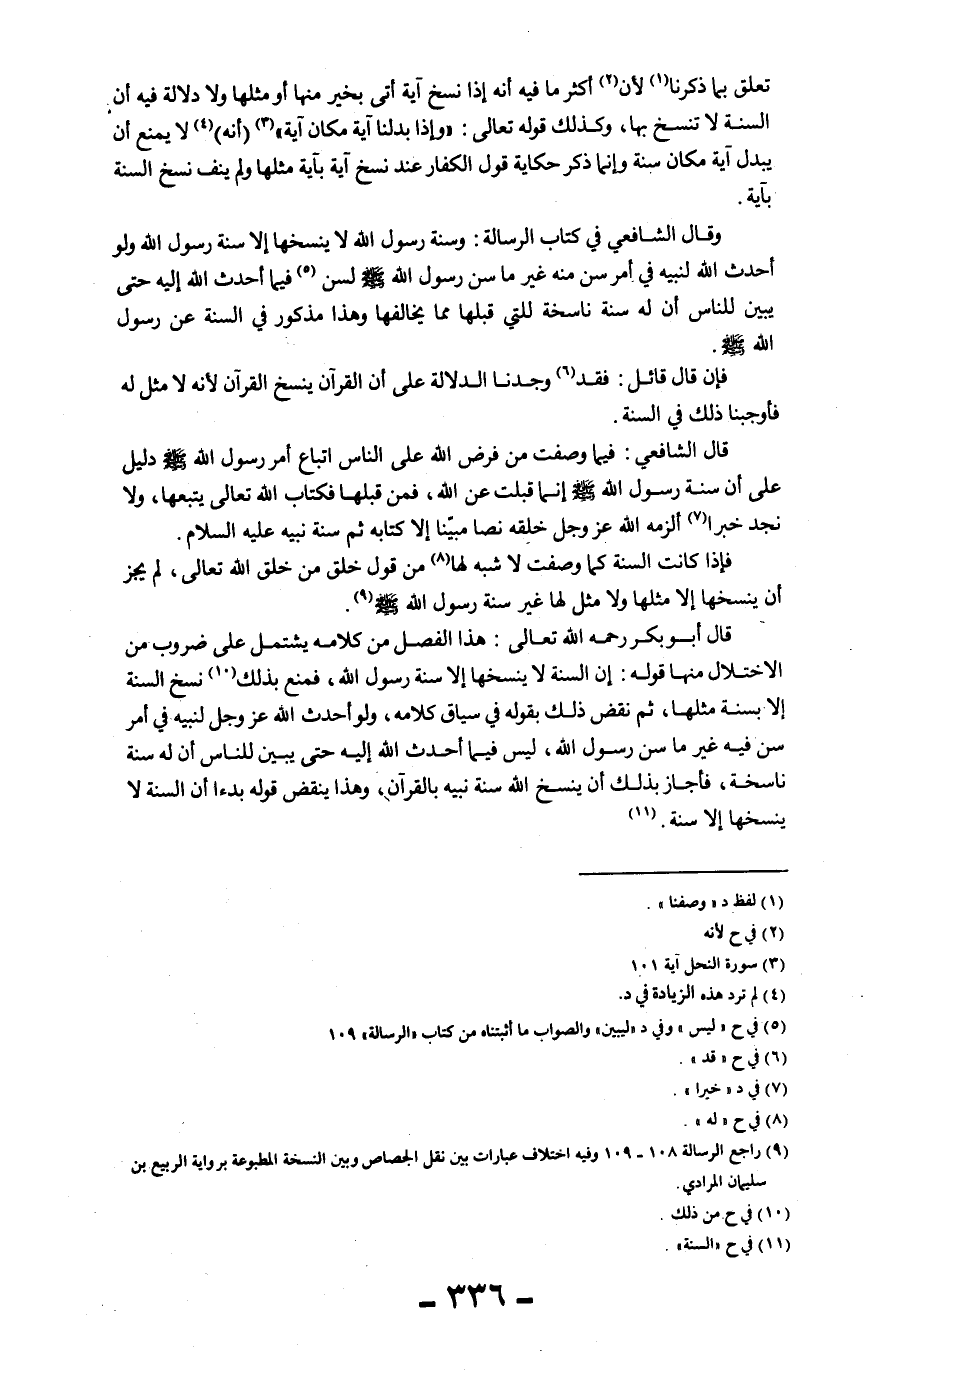 تعلق بما ذكرنا(١) لأن(٢) أكثر ما فيه أنه إذا نسخ آية أتى بخير منها أو مثلها ولا دلالة فيه أن
السنة لا تنسخ بها، وكذلك قوله تعالى : «وإذا بدلنا آية مكان آية»(٣) (أنه)(٤) لا يمنع أن
يبدل آية مكان سنة وإنما ذكر حكاية قول الكفار عند نسخ آية بآية مثلها ولم ينف نسخ السنة
بآية .
وقال الشافعي في كتاب الرسالة : وسنة رسول الله لا ينسخها إلا سنة رسول الله ولو
أحدث الله لنبيه في أمر سن منه غير ما سن رسول الله ﷺ لسن (٥) فيما أحدث الله إليه حتى
يبين للناس أن له سنة ناسخة للتي قبلها مما يخالفها وهذا مذكور في السنة عن رسول
الله ﷺ .
فإن قال قائل : فقد(٦) وجدنا الدلالة على أن القرآن ينسخ القرآن لأنه لا مثل له
فأوجبنا ذلك في السنة .
قال الشافعي : فيما وصفت من فرض الله على الناس اتباع أمر رسول الله ﷺ دليل
على أن سنة رسول الله ﷺ إنما قبلت عن الله ، فمن قبلها فكتاب الله تعالى يتبعها، ولا
نجد خبرا(٧) ألزمه الله عز وجل خلقه نصا مبيّنا إلا كتابه ثم سنة نبيه عليه السلام .
فإذا كانت السنة كما وصفت لا شبه لها(٨) من قول خلق من خلق الله تعالى ، لم يجز
أن ينسخها إلا مثلها ولا مثل لها غير سنة رسول الله ﷺ(٩) .
قال أبو بكر رحمه الله تعالى : هذا الفصل من كلامه يشتمل على ضروب من
الاختلال منها قوله : إن السنة لا ينسخها إلا سنة رسول الله ، فمنع بذلك(١٠) نسخ السنة
إلا بسنة مثلها، ثم نقض ذلك بقوله في سياق كلامه ، ولو أحدث الله عز وجل لنبيه في أمر
سن فيه غير ما سن رسول الله ، ليس فيما أحدث الله إليه حتى يبين للناس أن له سنة
ناسخة ، فأجاز بذلك أن ينسخ الله سنة نبيه بالقرآن، وهذا ينقض قوله بدءا أن السنة لا
ينسخها إلا سنة . (١١)
(١) لفظ د « وصفنا » .
(٢) في ح لأنه
(٣) سورة النحل آية ١٠١
(٤) لم ترد هذه الزيادة في د.
(٥) في ح « ليس » وفي د «ليبين» والصواب ما أثبتناه من كتاب «الرسالة» ١٠٩
(٦) في ح « قد » .
(٧) في د « خيرا » .
(٨) في ح « له » .
(٩) راجع الرسالة ١٠٨ - ١٠٩ وفيه اختلاف عبارات بين نقل الجصاص وبين النسخة المطبوعة برواية الربيع بن
سليمان المرادي.
(١٠) في ح من ذلك .
(١١) في ح «السنة» .
- ٣٣٦ -